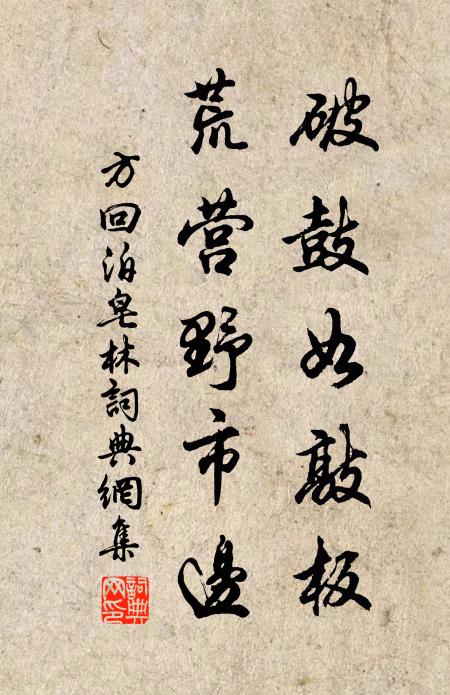 破鼓如敲板
荒营野市邊
方回泊皂林詞典網集
詞典
网印